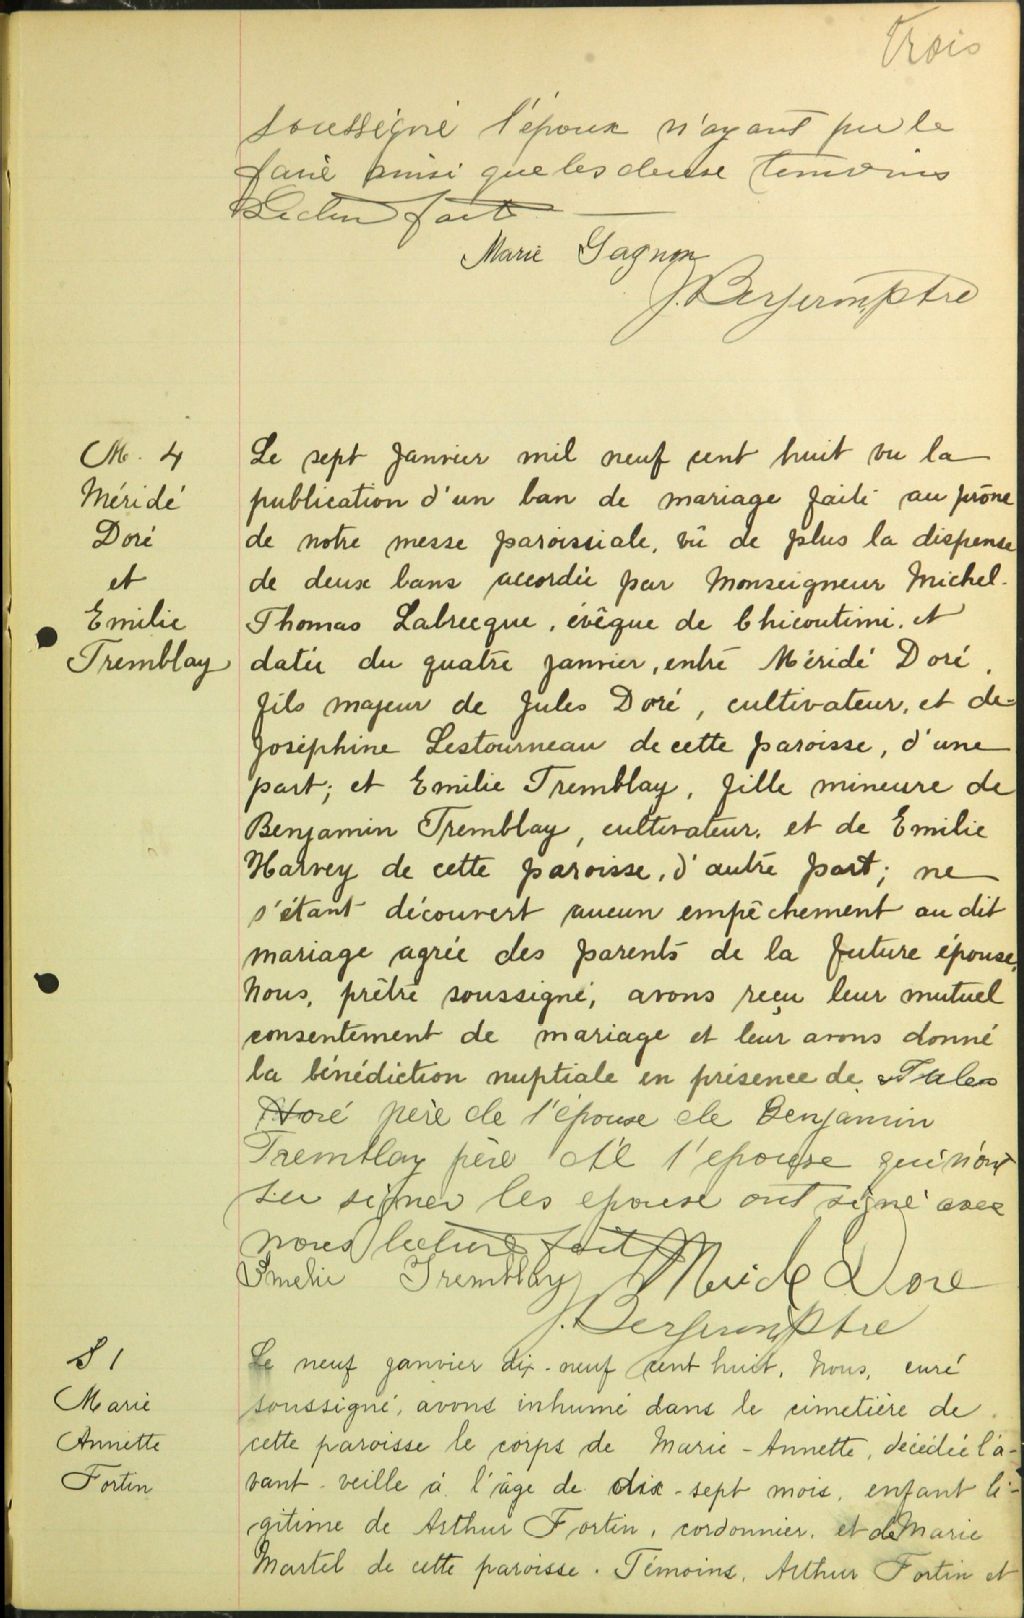 Trois
soussigné l'époux n'ayant pu le
faire ainsi que les deux témoins
Lecture fait
Marie Gagnon
Ptre
M. 4
Méridé
Doré
et
Emilie
Tremblay
Le sept janvier mil neuf cent huit vu la
publication d'un ban de mariage faite au prône
de notre messe paroissiale, vû de plus la dispense
de deux bans accordée par Monseigneur Michel-
Thomas Labrecque, évêque de Chicoutimi, et
datée du quatre janvier, entre Méridé Doré,
fils majeur de Jules Doré, cultivateur, et de
Joséphine Lestourneau de cette paroisse, d'une
part; et Emilie Tremblay, fille mineure de
Benjamin Tremblay, cultivateur, et de Emilie
Harvey de cette paroisse, d'autre part; ne
s'étant découvert aucun empêchement au dit
mariage agrée des parents de la future épouse,
Nous, prêtre soussigné, avons reçu leur mutuel
consentement de mariage et leur avons donné
la bénédiction nuptiale en présence de Jules
Doré père de l'épouse de Benjamin
Tremblay père de l'epouse qui n'ont
su signer les epouse ont signé avec
nous lecture fait
Emelie Tremblay Meride Dore
Ptre
S 1
Marie
Annette
Fortin
Le neuf janvier dix-neuf cent huit, Nous, curé
soussigné, avons inhumé dans le cimetière de
cette paroisse le corps de Marie-Annette, décédée l'a-
vant-veille à l'âge de dix-sept mois, enfant lé-
gitime de Arthur Fortin, cordonnier, et de Marie
Martel de cette paroisse. Témoins, Arthur Fortin et